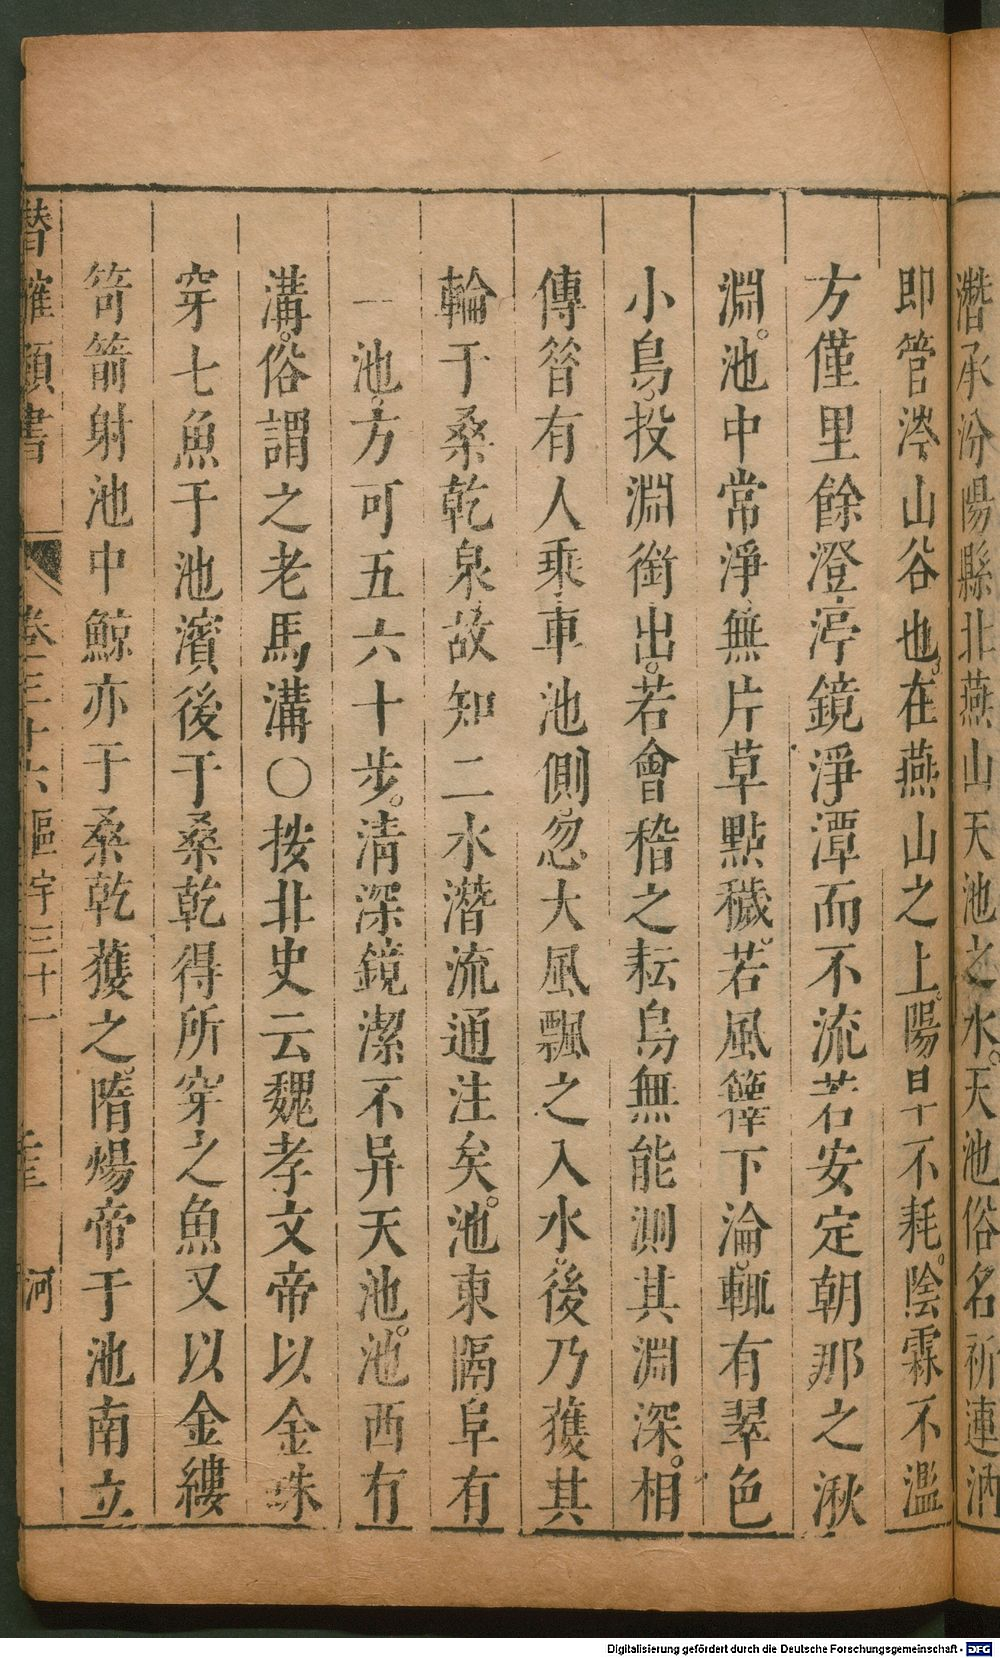 潛承汾陽縣北燕山天池之水天池俗名祈連泲
即管涔山谷也在燕山之上陽旱不耗陰霖不濫
方僅里餘澄渟鏡淨潭而不流若安定朝那之湫
淵池中常淨無片草點穢若風籜下淪輒有翠色
小鳥投淵銜出若會稽之耘鳥無能測其淵深相
傳昝有人乘車池側忽大風飄之入水後乃獲其
輪于桑乾泉故知二水潛流通注矣池東隔阜有
一池方可五六十步清深鏡潔不异天池池西有
溝俗謂之老馬溝〇按北史云魏孝文帝以金珠
穿七魚于池濱後于桑乾得所穿之魚又以金縷
笴箭射池中鯨亦于桑乾獲之隋煬帝于池南立
潛確類書 卷三十六 區宇三十一 河
Digitalisierung gefördert durch die Deutsche Forschungsgemeinschaft - DFG